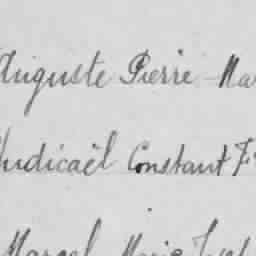 Auguste Pierre Ma
Judicaël Constant F
Marcel Marie Josep